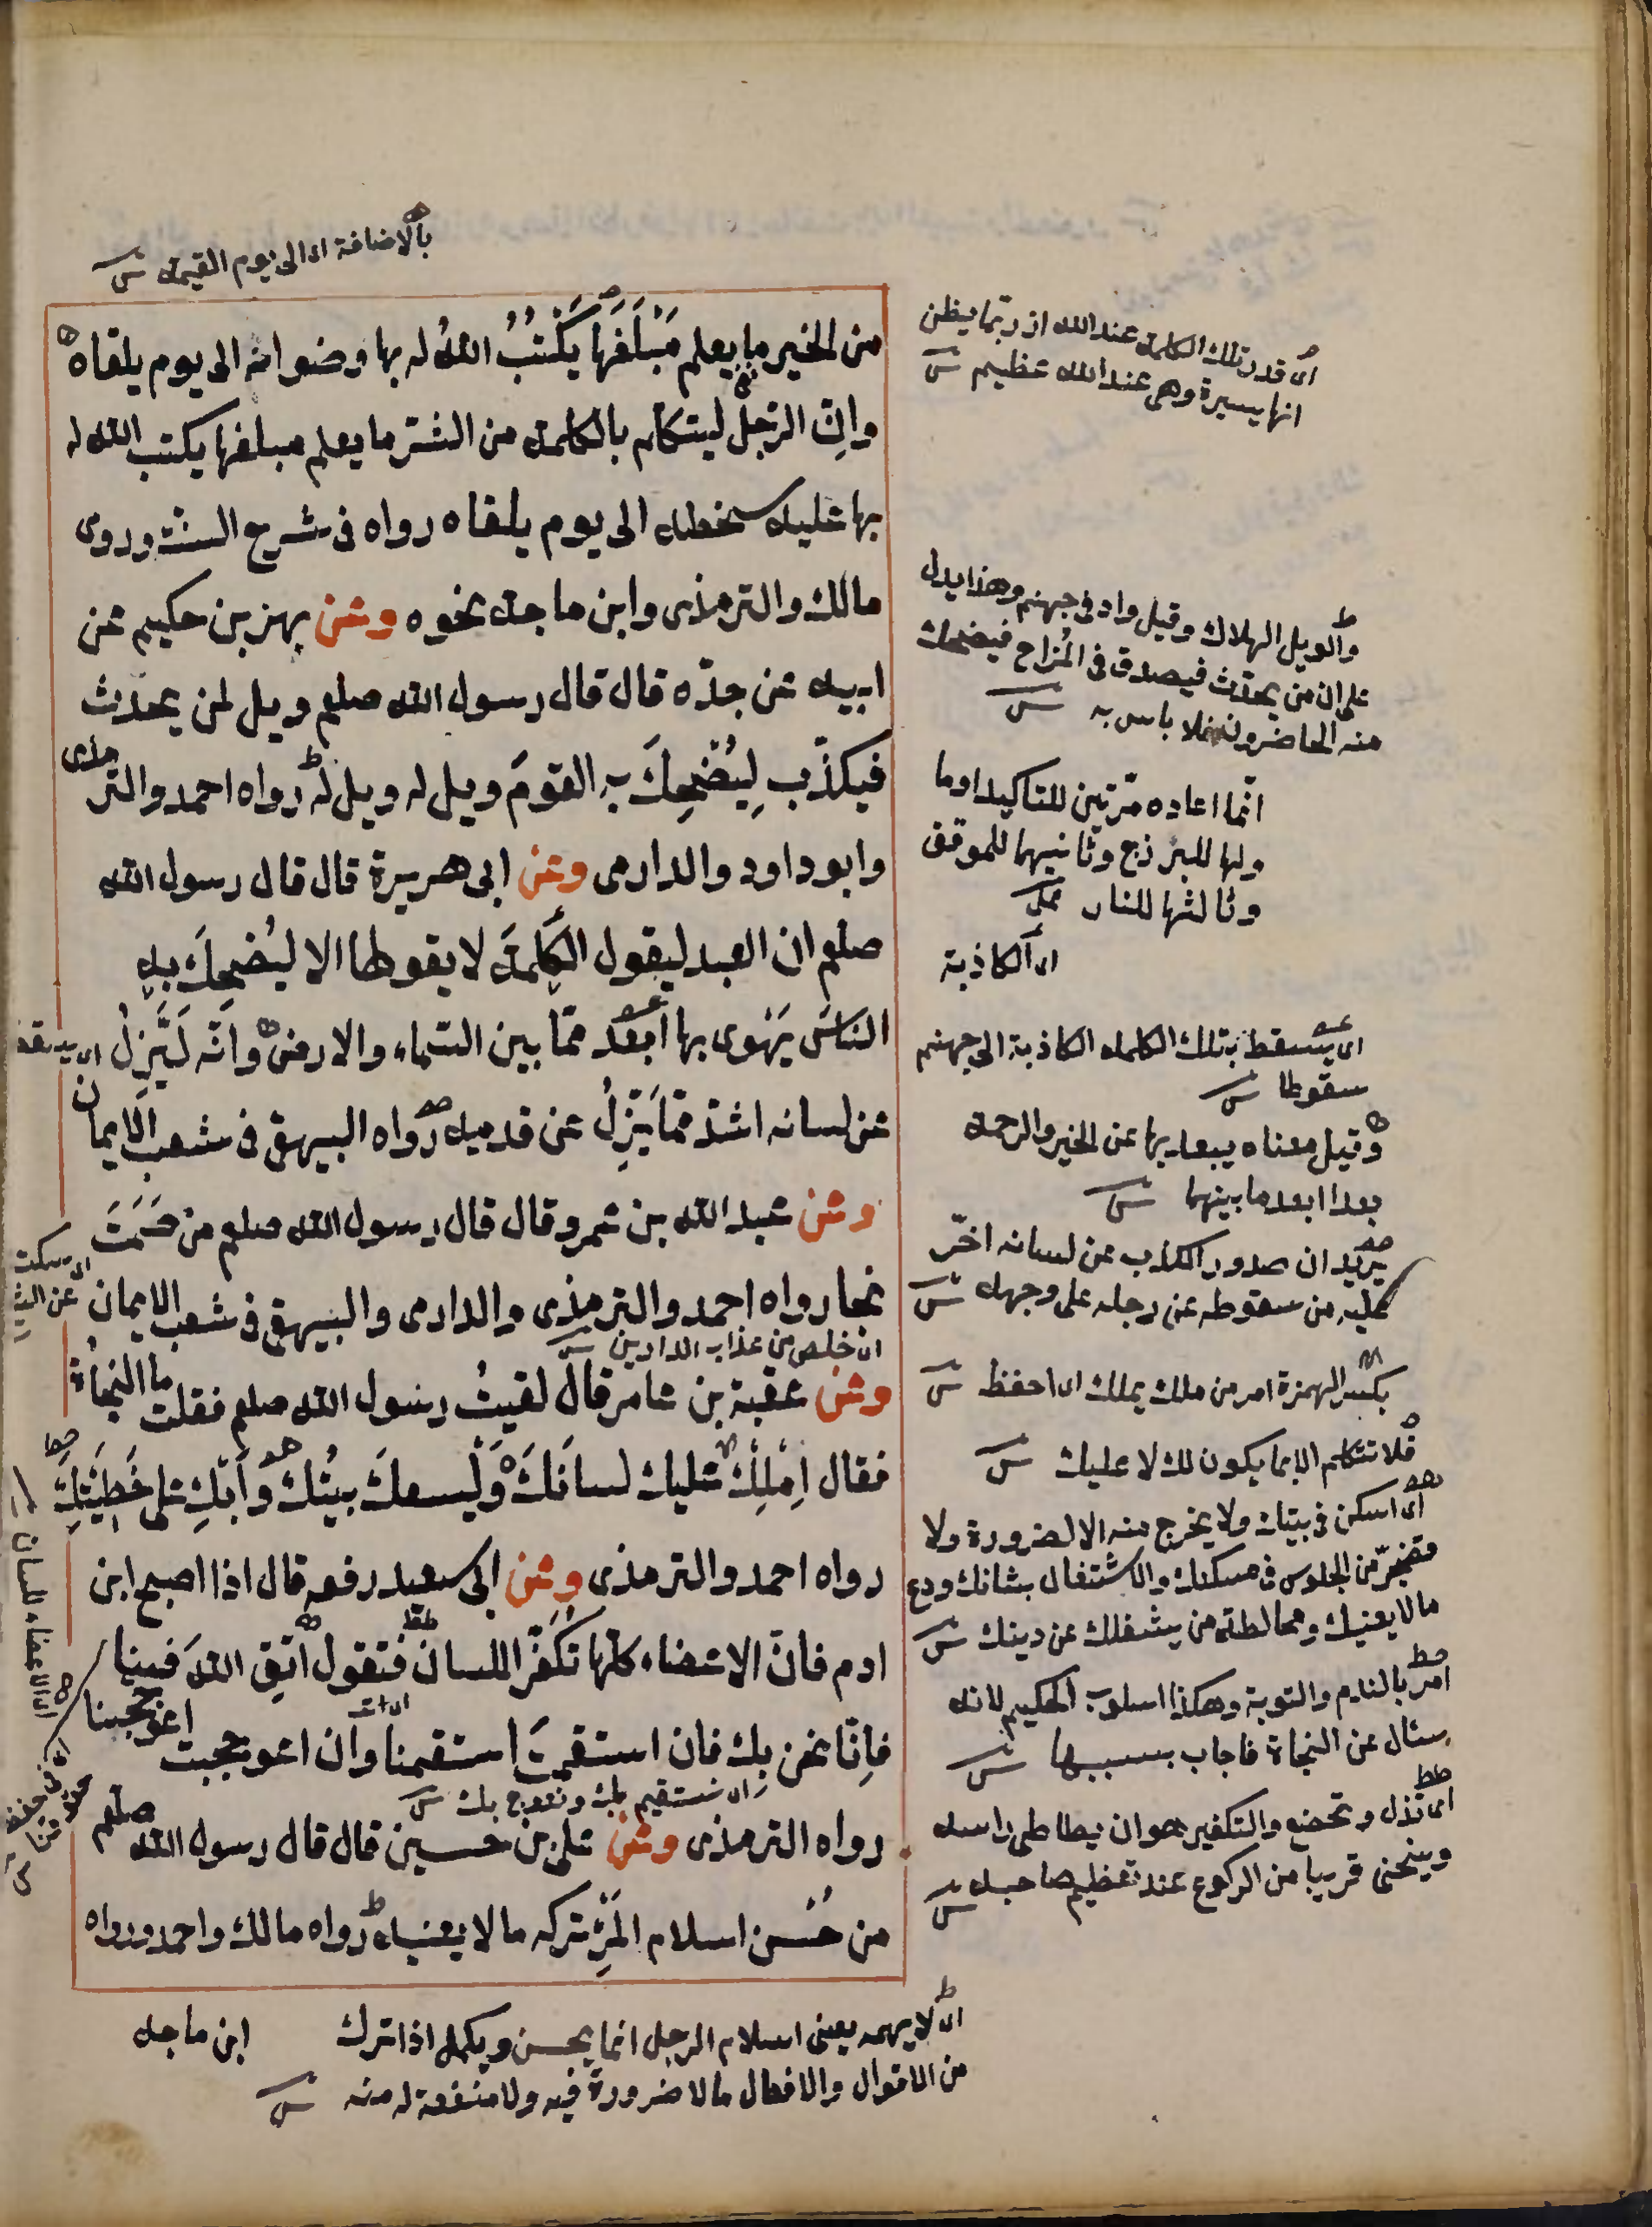 بالاضافة اى الى يوم القيمة ش
من الخير ما يعلم مَبْلَغَها يَكْتُبُ اللهُ له بها رضوانه الى يوم يلقاه
وانِّ الرّجل ليتكلم بالكلمة من الشّر ما يعلم مبلغها يكتب الله له
بها عليه سخطه الى يوم يلقاه رواه فى شرح السنة وروى
مالك والترمذى وابن ماجة نحوه وعن بهز بن حكيم عن
ابيه عن جدّه قال قال رسول الله صلعم ويل لمن يحدث
فيكذب لِيُضْحِكَ به القومَ ويل له ويل له رواه احمد والترمذى
وابو داود والدارمى وعن ابى هريرة قال قال رسول الله
صلعم ان العبد ليقول الكلمة لا يقولها الا ليُضحِكَ به
الناسَ يَهْوى بها اَبعَد ممّا بين السّماء والارض وانّه لَيَزِلُّ
عن لسانه اشدّ ممّا يَزِلُّ عن قدميه رواه البيهقى فى شعب الايمان
وعن عبد الله بن عمرو قال قال رسول الله صلعم من صَمَتَ
نجا رواه احمد والترمذى والدارمى والبيهقى فى شعب الايمان
اى خلص من عذاب الدارين ش
وعن عقبة بن عامر قال لقيتُ رسول الله صلعم فقلت ما النجاة
فقال اِملِكْ عليك لسانَكَ وَلْيَسعكَ بيتُك وَابْكِ على خَطِيئتِكَ
رواه احمد والترمذى وعن ابى سعيد رفعه قال اذا اصبح ابن
ادم فانّ الاعضاء كلّها تُكَفِّر اللسان فتقول اتّقِ اللهَ فينا
فاِنّا نحن بك فان استقمتَ استقمنا وان اعوججت اعوججنا
اى نستقيم بك ونعوج بك ش
رواه الترمذى وعن على بن حسين قال قال رسول الله صلعم
من حُسْن اسلام المَرْءِ تركه ما لا يعنيه رواه مالك واحمد ورواه
ابن ماجه
اى قدر تلك الكلمة عند الله اذ ربّما يظن
انها يسيرة وهى عند الله عظيم ش
والويل الهلاك وقيل واد فى جهنم وهذا يدل
على ان من يحدّث فيصدق فى المُزاح فيضحك
منه الحاضرون فلا باس به ش
انّما اعاده مرّتين للتاكيد او ما
ولها للبرزخ وثانيها للموقف
وثالثها للنار
اى الكاذبة
اى يسقط بتلك الكلمه الكاذبة الى جهنم
سقوطا ش
وقيل معناه يبعد بها عن الخير والرحمة
بعدا ابعد ما بينهما ش
يريد ان صدور الكذب عن لسانه اضرّ
عليه من سقوطه عن رجله على وجهه ش
بكسر الهمزة امر من ملك يملك اى احفظ ش
فلا تتكلم الا بما يكون لك لا عليك ش
اى اسكن فى بيتك ولا يخرج منه الا لضرورة ولا
تضجر من الجلوس فى مسكنك والاشتغال بشانك ودع
ما لا يعنيك ومخالطة من يشغلك عن دينك ش
امر بالندم والتوبة وهكذا اسلوب الحكيم لانه
سئال عن النجاة فاجاب بسببها ش
اى تذل وتخضع والتكفير هو ان يطاطى راسه
وينحنى قريبا من الركوع عند تعظيم صاحبه ش
اى لا يهمه يعنى اسلام الرجل انما يحسن ويكمل اذا ترك
من الاقوال والافعال ما لا ضرورة فيه ولا منفعة له منه ش
اى سكت
اى الاعضاء للسان